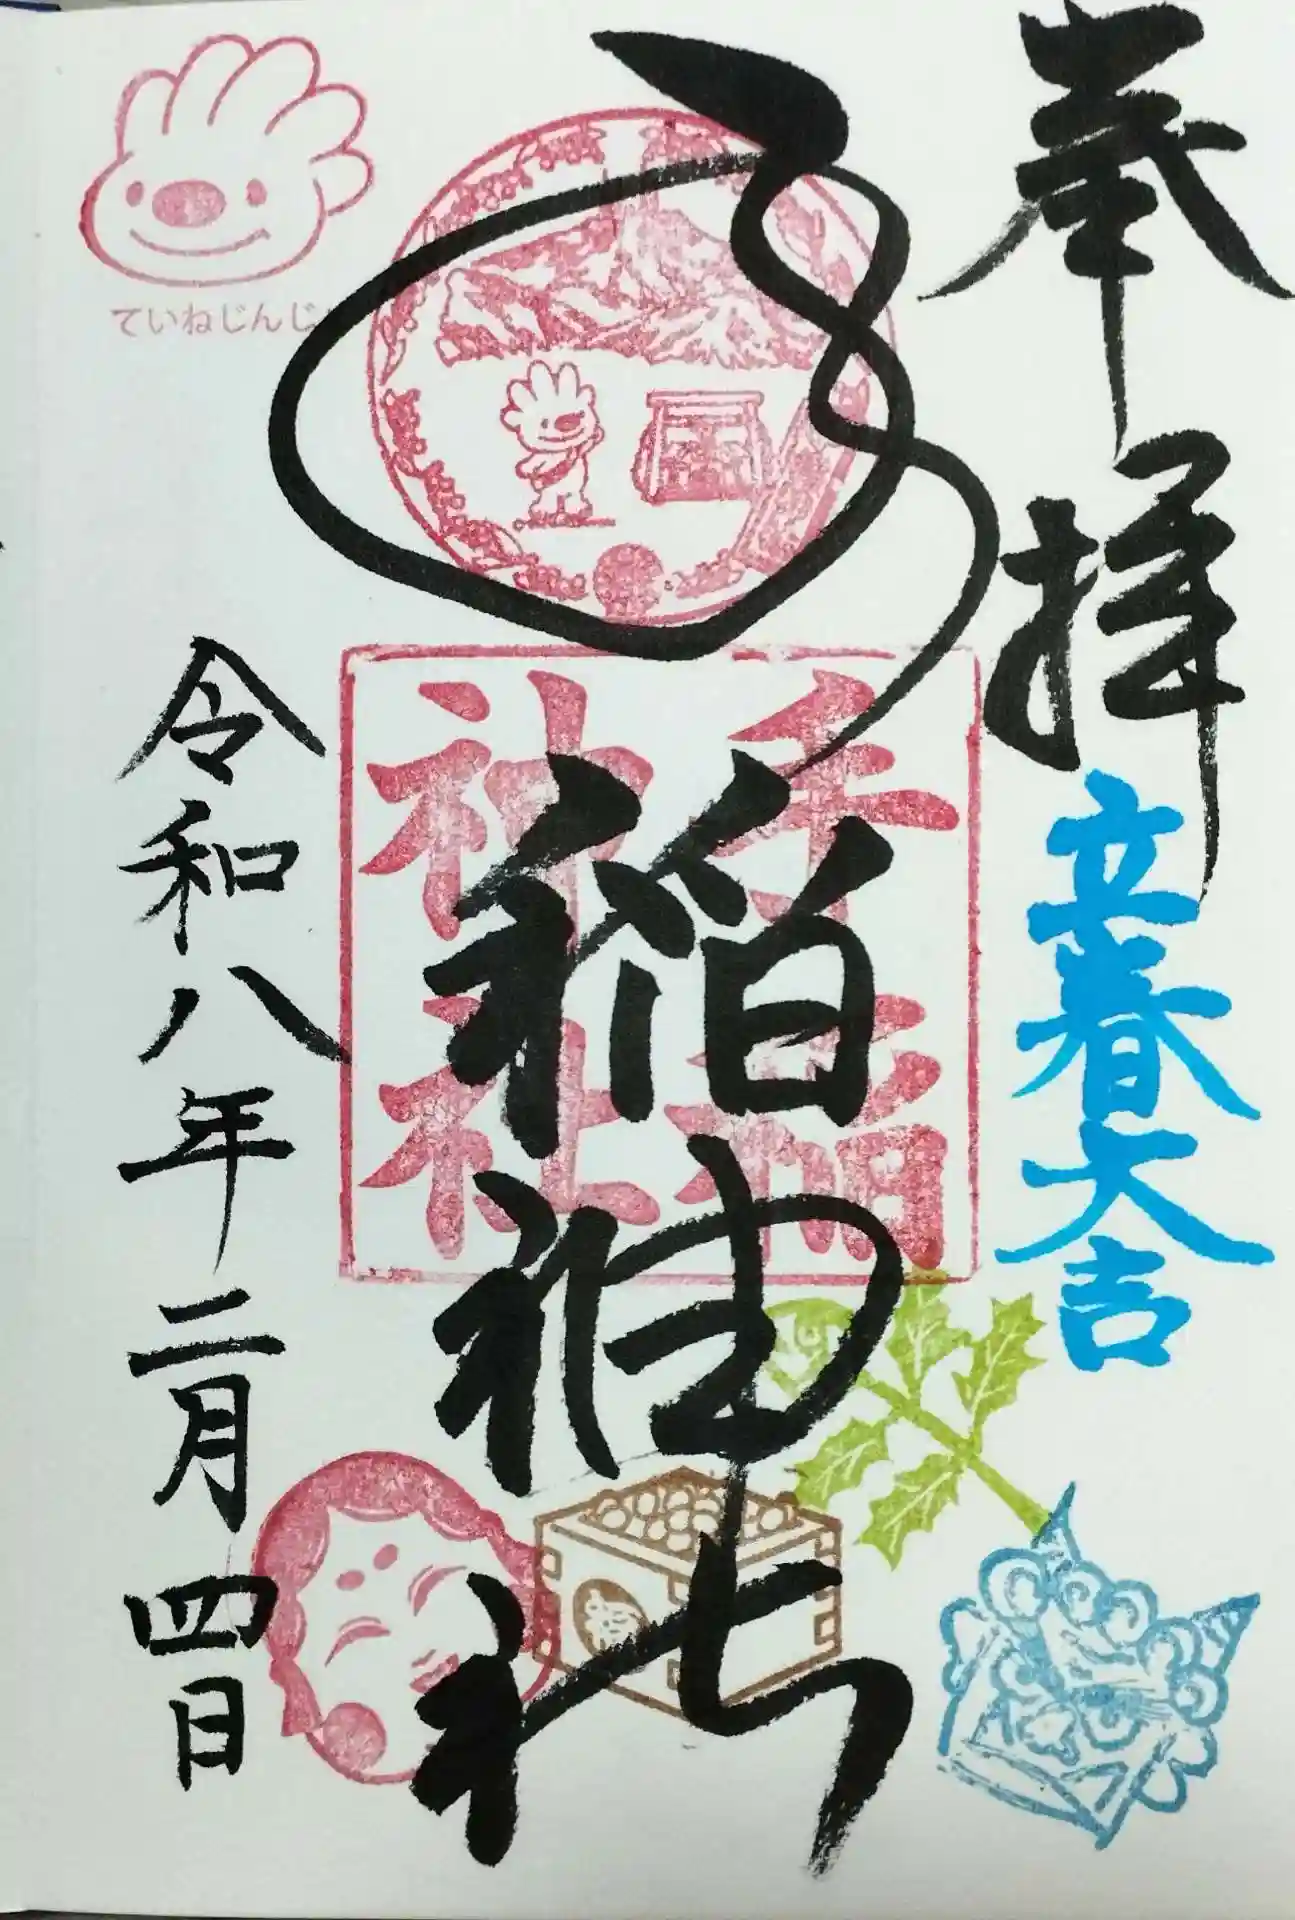 奉拝
立春大吉
手稲神社
手稲
神社
ていねじんじ
令和八年二月四日